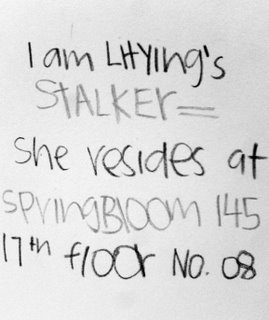 I am LHYing's
STALKER=
She resides at
SpringBloom 145
17th floor No. 08